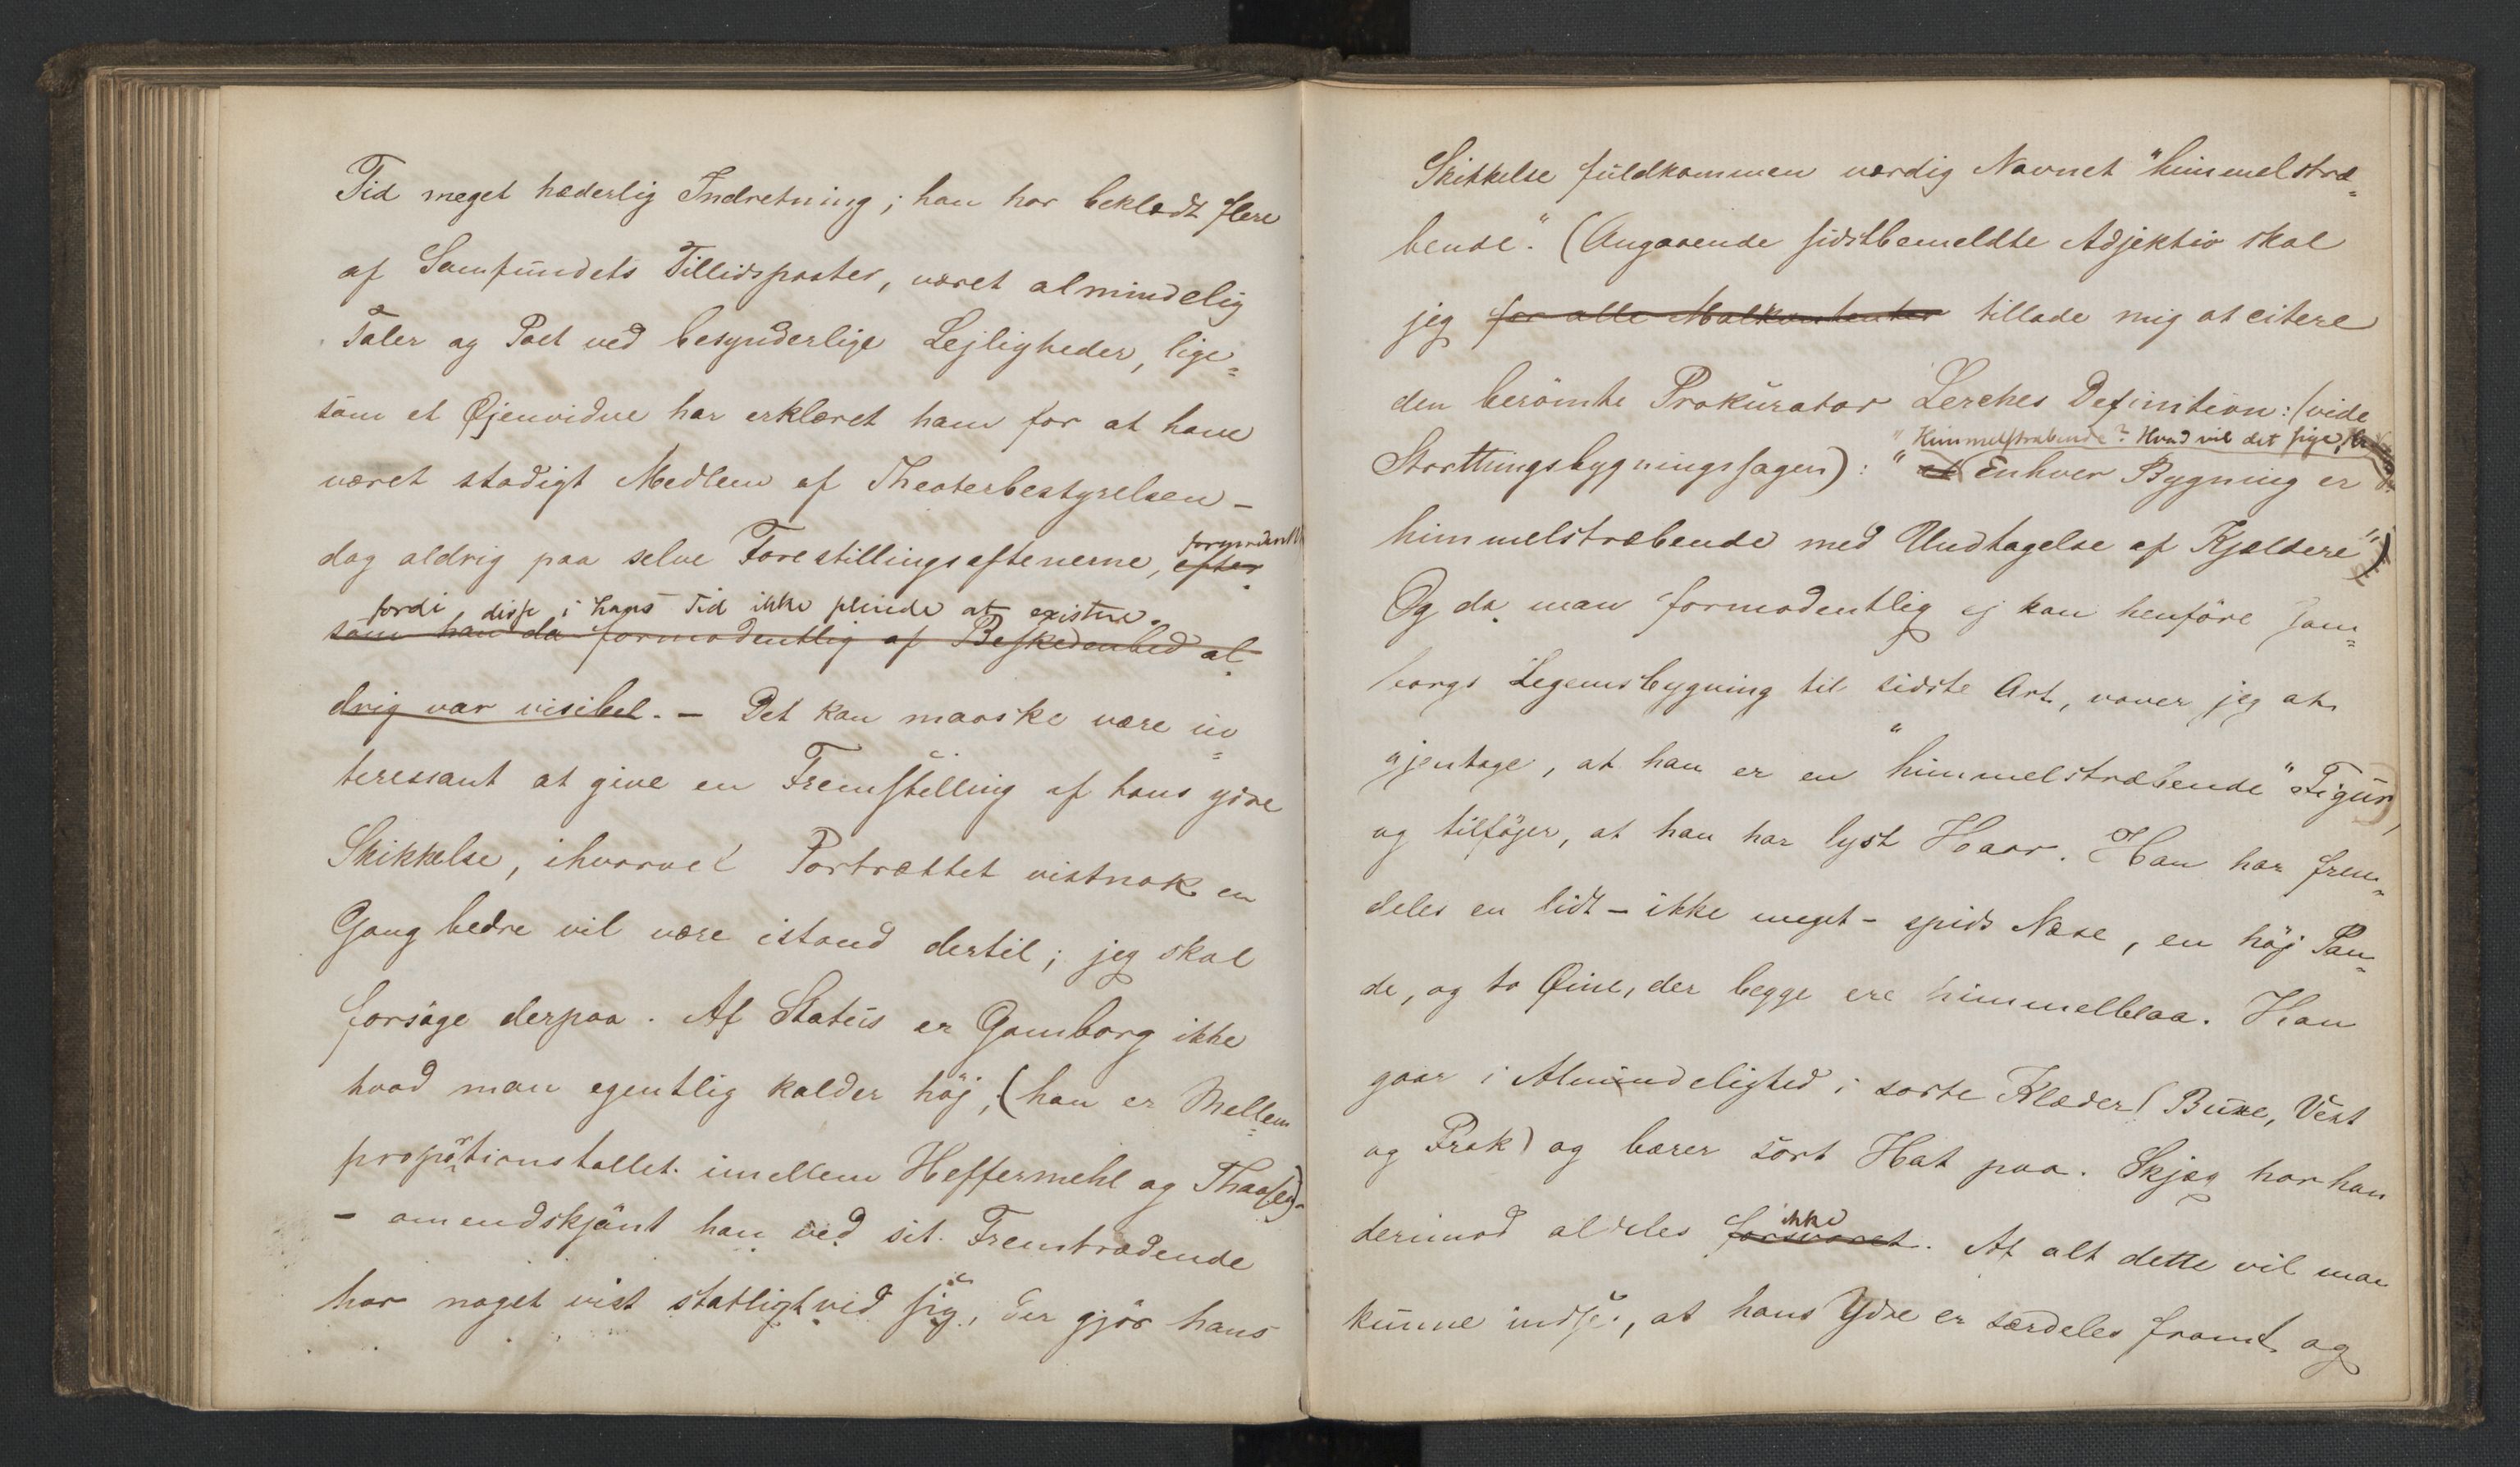 Tid meget hæderlig Indretning; han har beklædt flere
af Samfundets Tillidsposter, været almindelig
Taler og Poet ved besynderlige Lejligheder, lige=
som et Øjenvidne har erklæret ham for at have
været stadigt Medlem af Theaterbestyrelsen –
formodentl
dog aldrig paa selve Forestillingsaftenerne, efter
fordi disse i hans Tid ikke pleiede at existere.
som han da formodentlig af Beskedenhed al
drig var visibel. – Det kan maaske være in=
teressant at give en Fremstilling af hans ydre
Skikkelse, ihvorvel Portrættet vistnok en
Gang bedre vil være istand dertil; jeg skal
forsøge derpaa. Af Statur er Gamborg ikke
hvad man egentlig kalder höj, (han er Mellem=
propörtionstallet imellem Heffermehl og Thaasen) –
– omendskjönt han ved sit Fremtrædende
har noget vist statligt ved sig, der gjör hans
Skikkelse fuldkommen værdig Navnet "himmelstræ=
bende". (Angaaende sidstbemeldte Adjektiv skal
jeg for alle Malkontenter tillade mig at citere
den berömte Prokurator Lerches Definition: (vide
"Himmelstræbende? Hvad vil det sige,
Storthingsbygningssagen): " at Enhver Bygning er
himmelstræbende med Undtagelse af Kjældere")
Og da man formodentlig ej kan henföre Gam=
borgs Legemsbygning til sidste Art, vover jeg at
gjentage, at han er en "himmelstræbende" Figur,
og tilföjer, at han har lyst Haar. Han har frem=
deles en lidt – ikke meget – spids Næse, en höj Pan=
de, og to Øine, der begge ere himmelblaa. Han
gaar i Almindelighed i sorte Klæder (Buxe, Vest
og Frak) og bærer sort Hat paa. Skjæg har han
ikke
derimod aldeles forsvoret. Af alt dette vil man
kunne indse, at hans Ydre er særdeles fromt og